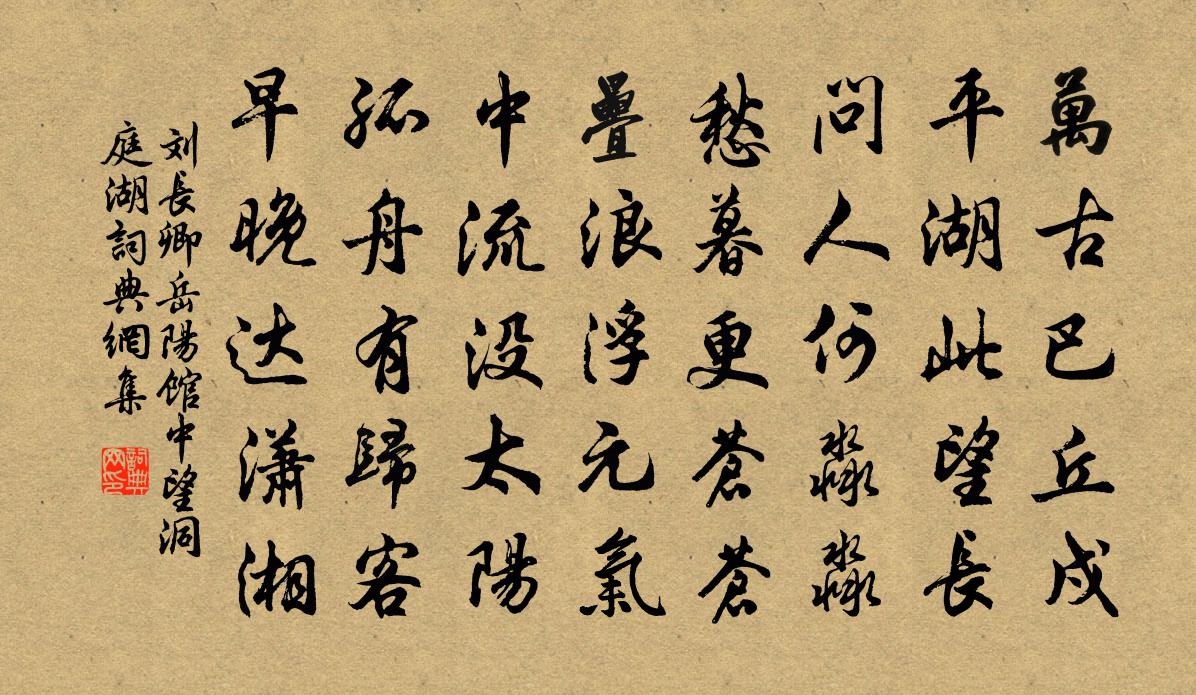 萬古巴丘戍
平湖此望長
問人何淼淼
愁暮更蒼蒼
疊浪浮元氣
中流没太陽
孤舟有歸客
早晚达潇湘
刘長卿岳陽館中望洞
庭湖詞典網集
詞典
网印